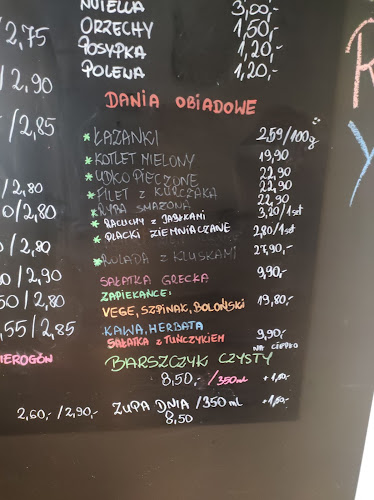 NUTELLA 3,00,-
/2,75 ORZECHY 1,50,-
POSYPKA 1,20,-
/2,90 POLEWA 1,20,-
DANIA OBIADOWE
/2,85
* ŁAZANKI 2,59/100g
* KOTLET MIELONY 19,90
* UDKO PIECZONE 22,90
* FILET Z KURCZAKA 22,90
/2,80 * RYBA SMAŻONA 22,90
0/2,80 * RACUCHY Z JABŁKAMI 3,20/1szt
* PLACKI ZIEMNIACZANE 2,80/1szt
/2,80
* ROLADA Z KLUSKAMI 27,90,-
0/2,90 SAŁATKA GRECKA 9,90,-
50/2,80 ZAPIEKANCE:
VEGE, SZPINAK, BOLOŃSKI 19,80,-
,55/2,85 KAWA, HERBATA
SAŁATKA Z TUŃCZYKIEM 9,90,-
IEROGÓW NA CIEPŁO
BARSZCZYK CZYSTY
8,50,-/350ml +1,50,-
2,60,-/2,90,- ZUPA DNIA /350ml +1,50,-
8,50